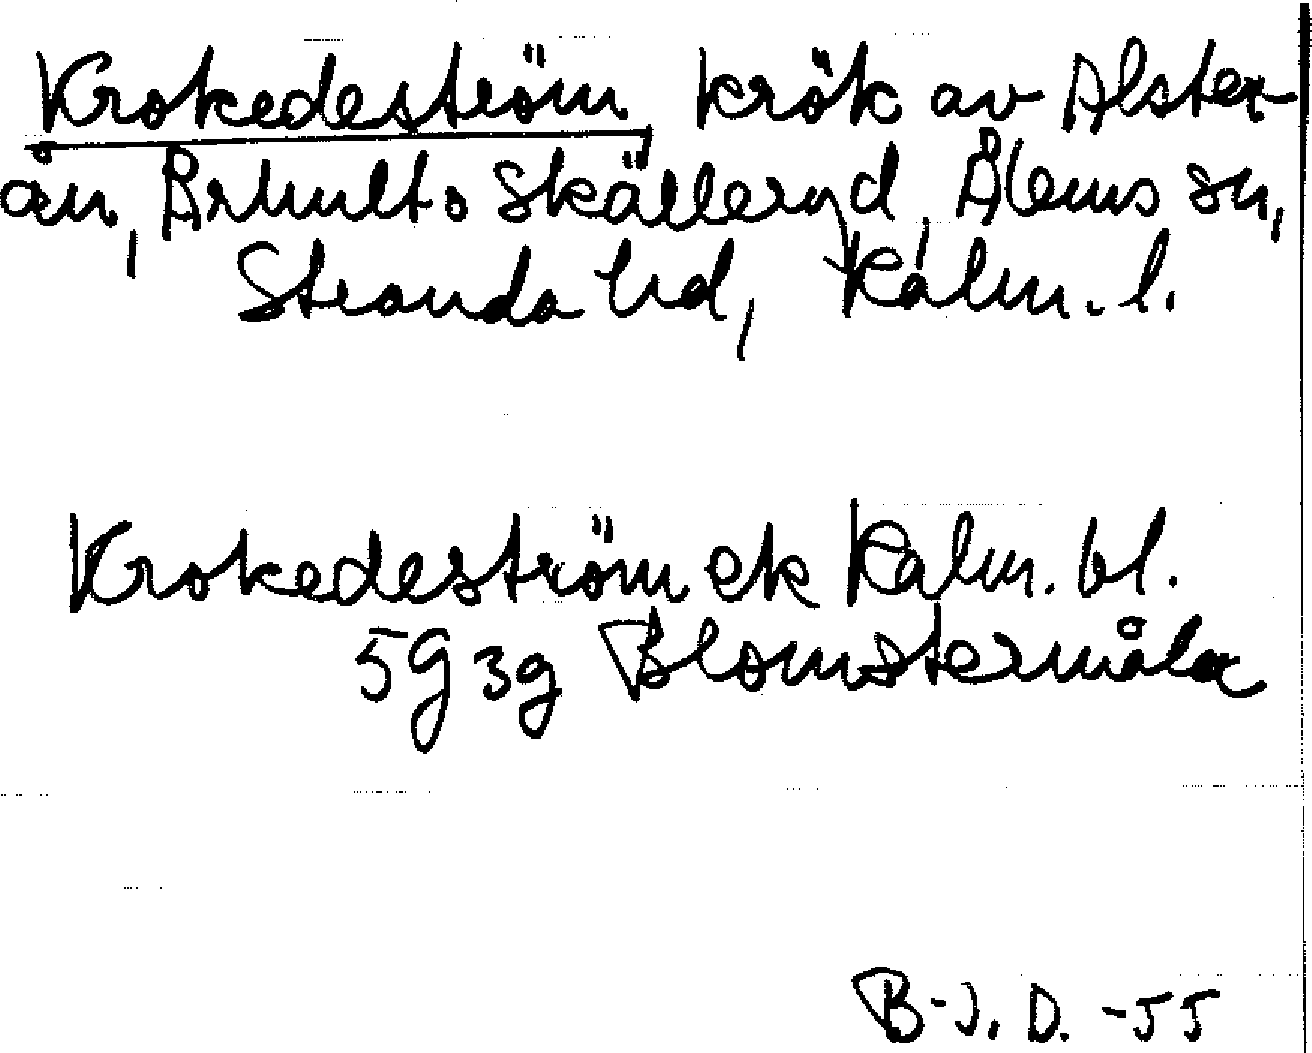 Krokedeström, krök av Alster-
ån, Århult o Skälleryd, Ålems sn,
Stranda hd, Kalm. l.
Krokedeström ek Kalm. bl.
5G3g Blomstermåla
B-J. D. -55